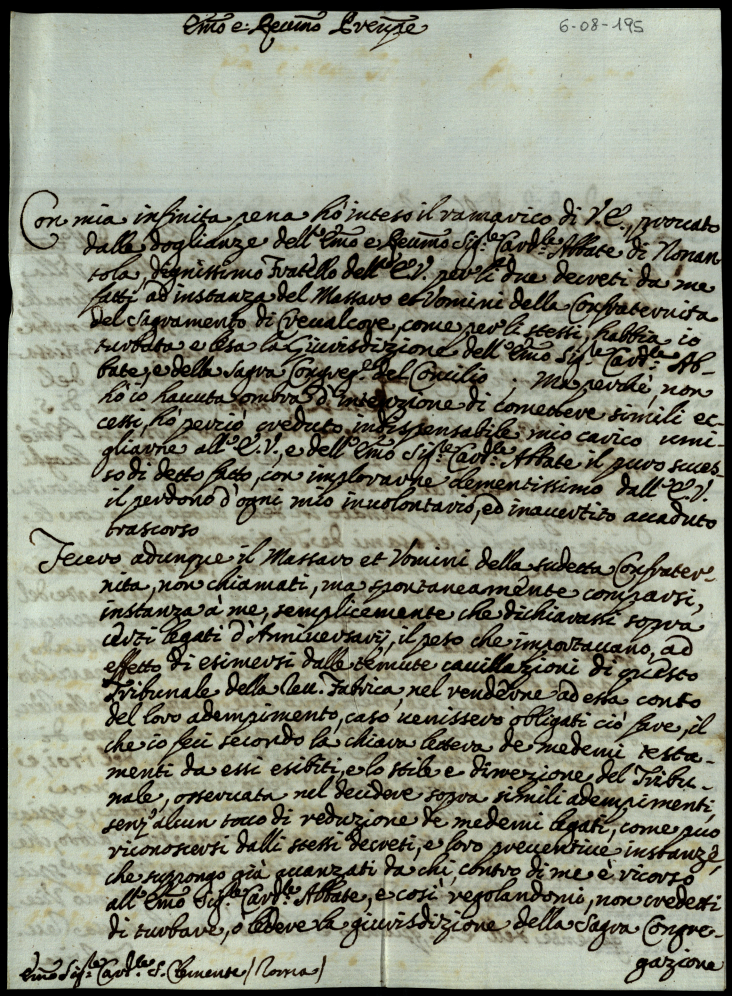 Emo e Revmo Prenpe
6-08-195
Con mia infinita pena hò inteso il ramarico di V.E., provato
dalle doglianze dell'Emo e Revmo Sigre Cardle Abbate di Nonan
tola, degnissimo Fratello dell'E.V. per li due decreti da me
fatti, ad instanza del Massaro et Uomini della Confraternita
del Sagramento di Crevalcore, come per li stessi, habbia io
turbata e lesa la Giurisdizione dell'Emo Sigre Cardle Ab-
bate, e della Sagra Congreg.e del Concilio. Ma perche non
hò io havuta ombra d'intenzione di comettere simili ec-
cessi, hò perciò creduto indispensabile mio carico umi-
gliarne all'E.V., e dell'Emo Sigre Cardle Abbate il puro succes-
so di detto fatto, con implorarne clementissimo dall'E.V.
il perdono d'ogni mio involontario, ed inavertito accaduto
trascorso
Fecero adunque il Massaro et Uomini della sudetta Confrater-
nita, non chiamati, ma spontaneamente comparsi,
instanza à me, semplicemente che dichiarassi sopra
certi legati d'Anniversarij, il peso che importavano, ad
effetto di esimersi dalle temute cavillazioni di questo
Tribunale della Rev. Fabrica, nel renderne ad essa conto
del loro adempimento, caso venissero obligati ciò fare, il
che io feci secondo la chiara lettera de medemi testa-
menti da essi esibiti, e lo stile e direzione del Tribu-
nale, osservata nel decidere sopra simili adempimenti,
senz'alcun tocco di reduzione de medemi legati, come può
riconoscersi dalli stessi decreti, e loro preventive instanze,
che suppongo già avanzati da chi contro di me è ricorso
all'Emo Sigre Cardle Abbate, e così regolandomi, non credetti
di turbare, ò ledere la giurisdizione della Sagra Congre-
gazione
Emo Sigre Cardle S. Clemente (Roma)